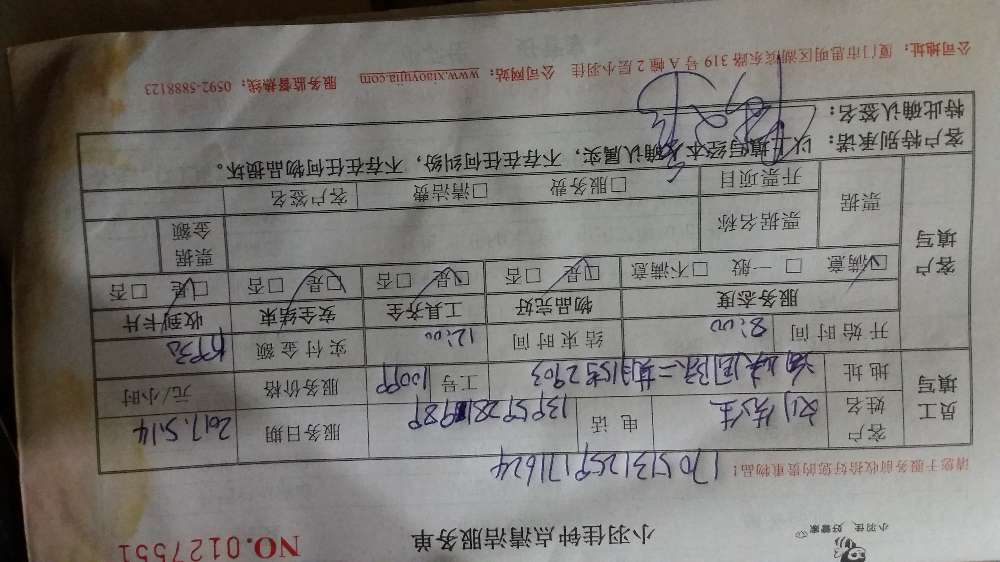 小羽佳，好管家
小羽佳钟点清洁服务单
NO.0127551
请您于服务前收拾好您的贵重物品！
员工填写
客户姓名 刘先生 电话 服务日期 2017.5.14
地址 工号 服务价格 元/小时
开始时间 8:00 结束时间 12:00 实付金额
客户填写
服务态度 物品完好 工具齐全 安全结束 收到卡片
☑满意 □一般 □不满意 ☑是 □否 ☑是 □否 ☑是 □否 ☑是 □否
票据 票据名称 票据金额
开票项目 □服务费 □清洁费 客户签名
客户特别承诺： 以上填写经本人确认属实，不存在任何纠纷，不存在任何物品损坏。
特此确认签名：
公司地址： 厦门市思明区湖滨东路 319 号 A 幢 2 层小羽佳 公司网站： www.xiaoyujia.com 服务监督热线： 0592-5888123